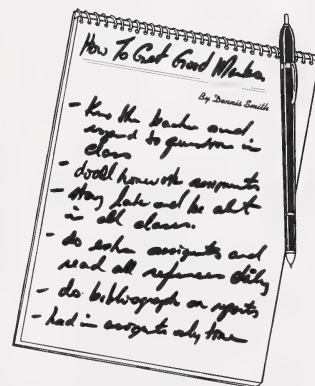 How To Get Good Marks
By Dennis Smith
- Know the books and
respond to questions in
class
- do all homework assignments
- stay late and be alert
in all classes.
- do extra assignments and
read all references
- do bibliography on reports
- hand in assignments only